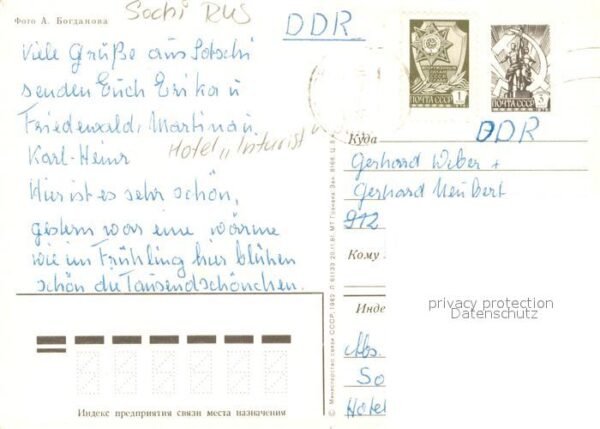 Sochi RUS
Фото А. Богданова
DDR
Viele Grüße aus Sotschi
senden Euch Erika u
Friedewald, Martina u.
Karl-Heinz
Hotel „Inturist
Hier ist es sehr schön,
gestern war eine wärme
wie im Frühling hier blühen
schön die Tausendschönchen.
ПОЧТА СССР 1
ПОЧТА СССР
DDR
Куда
Gerhard Weber +
Gerhard Neubert
912
Кому
privacy protection
Datenschutz
Инде
Abs.
So
Hotel
Индекс предприятия связи места назначения
© Министерство связи СССР. 1982